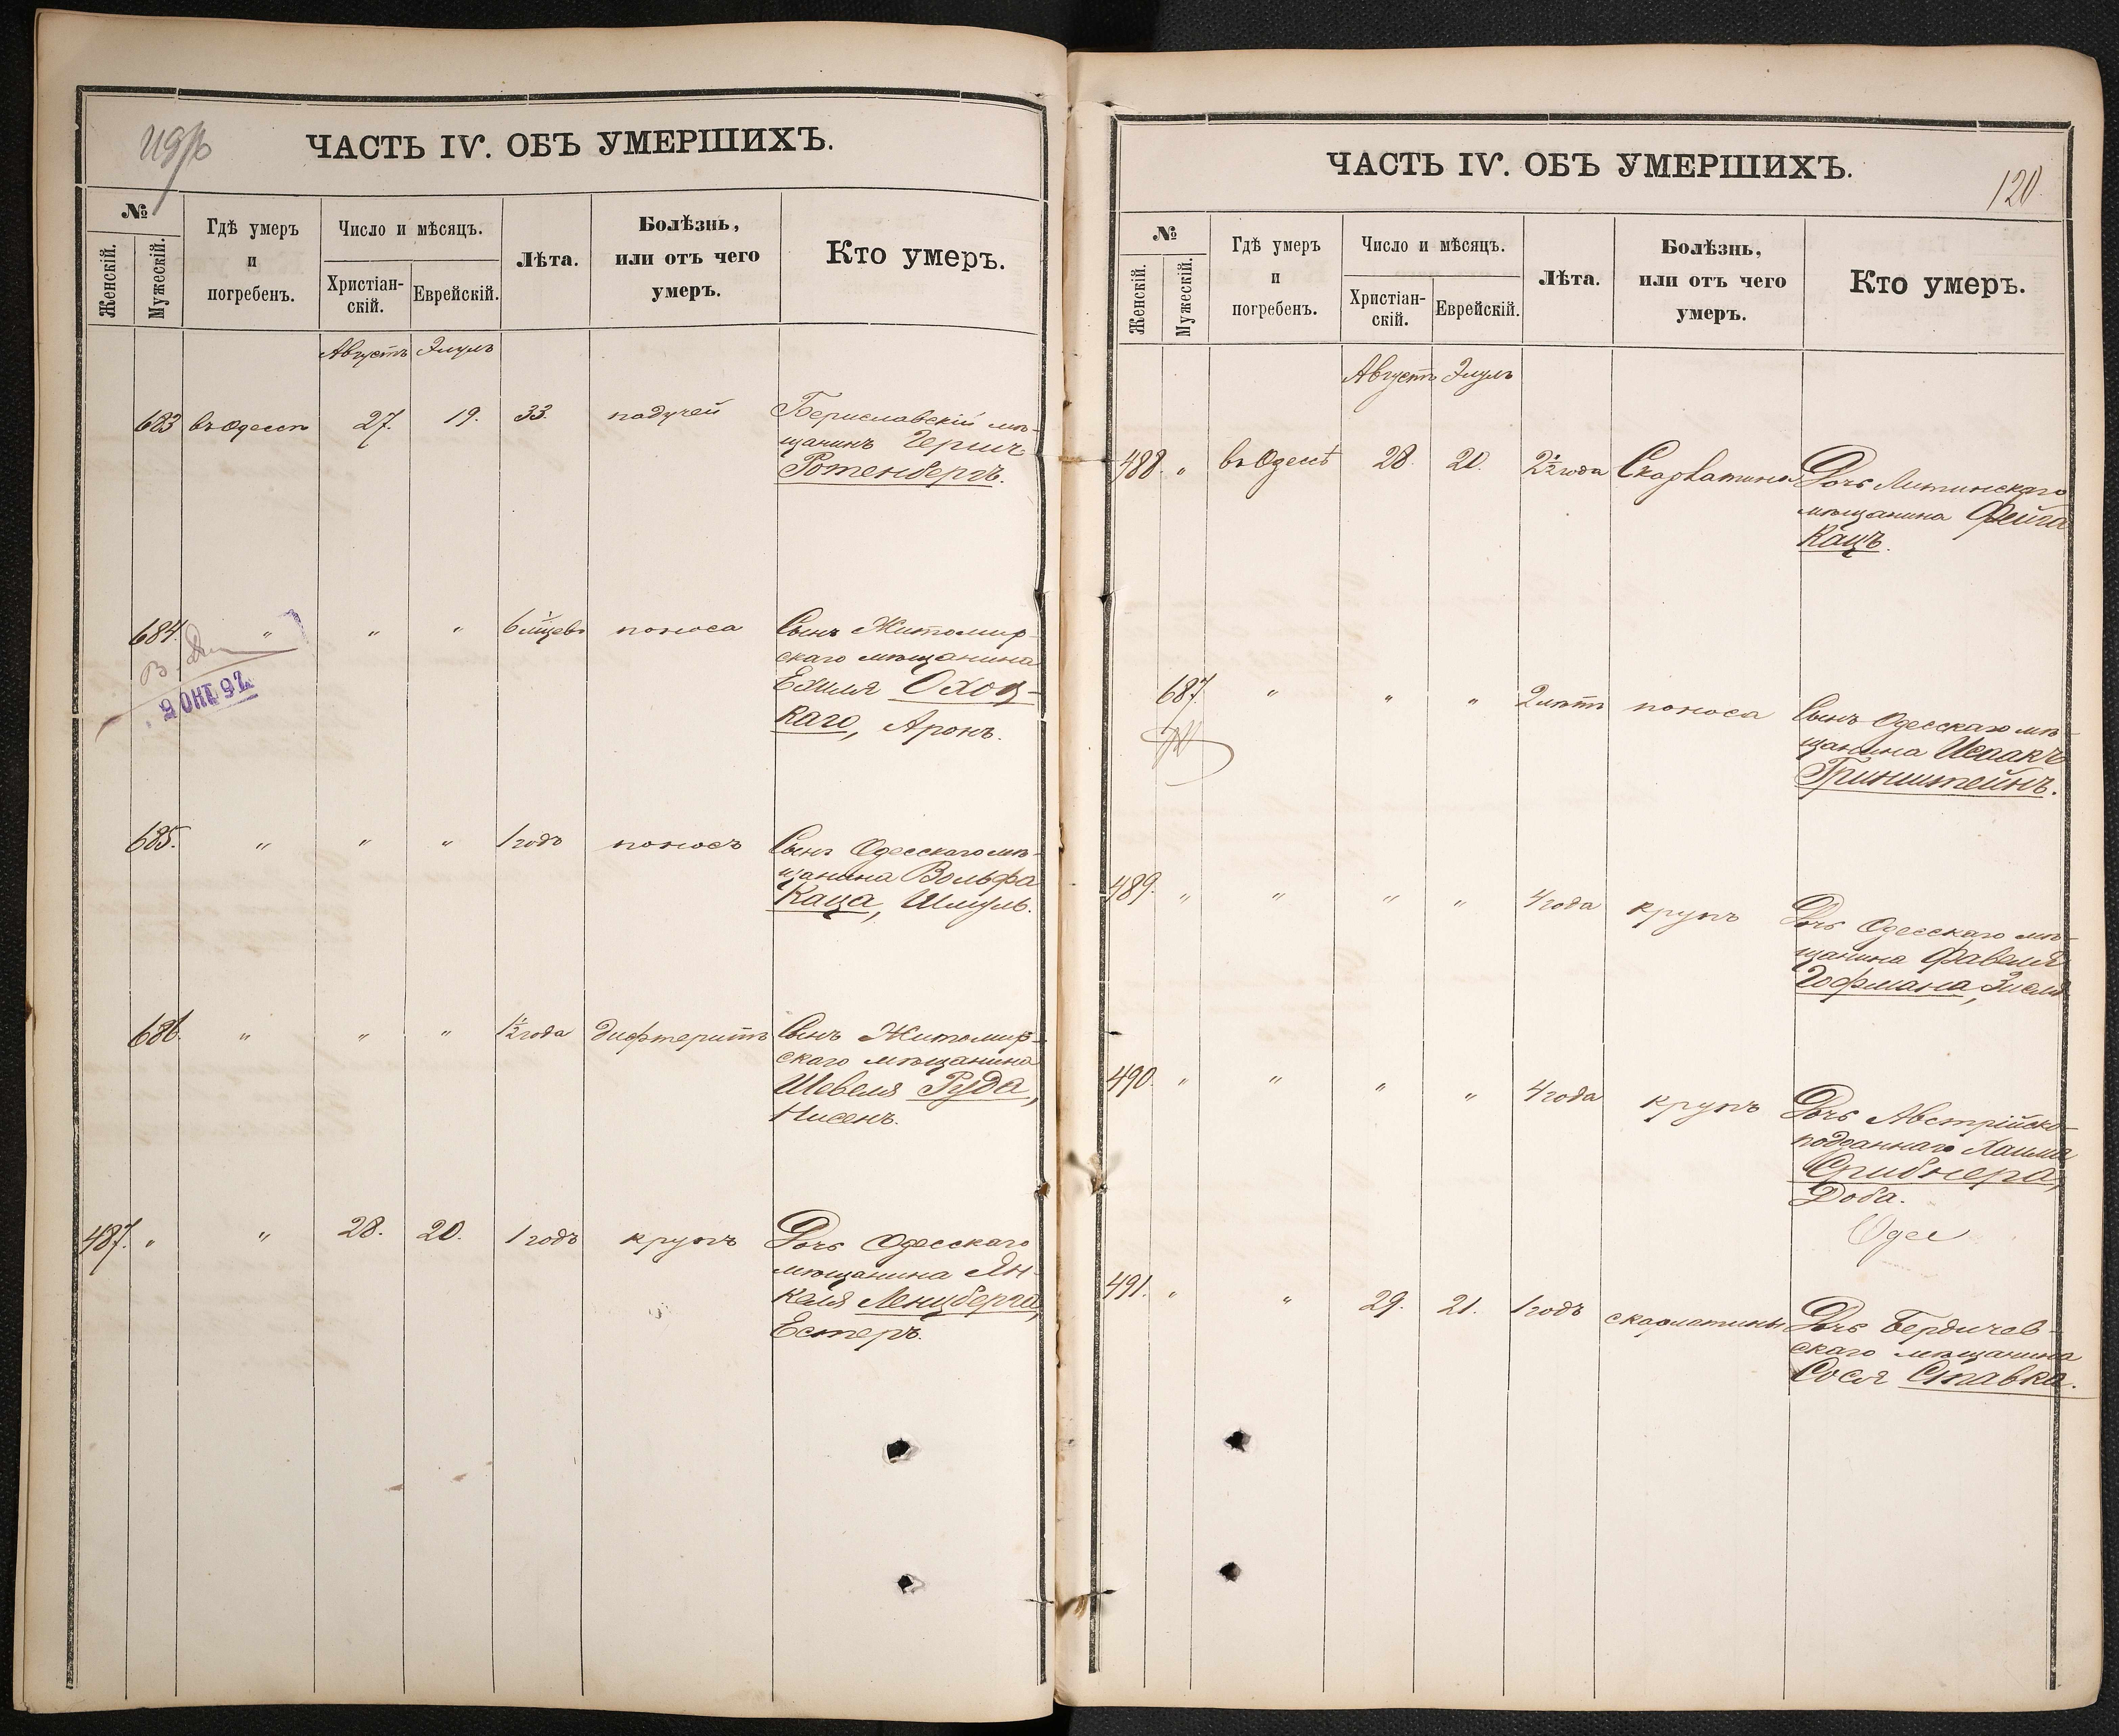 ЧАСТЬ IV. ОБЪ УМЕРШИХЪ.
№
Женскій.
Мужескій.
Гдѣ умеръ
и
погребенъ.
Число и мѣсяцъ.
Христіан-
скій.
Еврейскій.
Лѣта.
Болѣзнь,
или отъ чего
умеръ.
Кто умеръ.
Августъ Элулъ
683 въ Одессѣ 27. 19. 33. падучей Бериславскій мѣ-
щанинъ Гершъ
Ротенбергъ.
684. " " " 6 мѣцевъ поноса Сынъ Житомир-
скаго мѣщанина
Ехиля Охоц-
каго, Аронъ.
9 ОКТ 92
685. " " " 1 годъ поносъ Сынъ Одесскаго мѣ-
щанина Вольфа
Каца, Шмуль.
686. " " " 1½ года дифтеритъ Сынъ Житомир-
скаго мѣщанина
Шевеля Руда,
Нисенъ.
487. " " 28. 20. 1 годъ крупъ Дочь Одесскаго
мѣщанина Ян-
келя Ленцберга,
Естеръ.
ЧАСТЬ IV. ОБЪ УМЕРШИХЪ.
120
№
Женскій.
Мужескій.
Гдѣ умеръ
и
погребенъ.
Число и мѣсяцъ.
Христіан-
скій.
Еврейскій.
Лѣта.
Болѣзнь,
или отъ чего
умеръ.
Кто умеръ.
Августъ Элулъ
488. " въ Одессѣ 28. 20. 2½ года Скарлатина Дочь Литинскаго
мѣщанина Фейга
Кацъ.
687. " " " 2 лѣтъ поноса Сынъ Одесскаго мѣ-
щанина Исаакъ
Гринштейнъ.
489. " " " " 4 года крупъ Дочь Одесскаго мѣ-
щанина Фавеля
Гофмана,
490. " " " " 4 года крупъ Дочь Австрійско-
подданнаго Хаима
Срибнера,
Доба.
Одес
491. " " 29. 21. 1 годъ скарлатины Дочь Бердичев-
скаго мѣщанина
Сося Ставка.